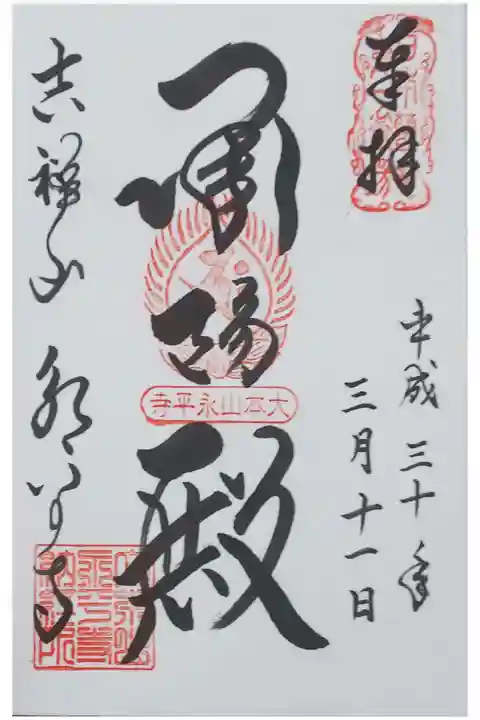 奉拝
平成三十年
三月十一日
承陽殿
大本山永平寺
吉祥山 永平寺